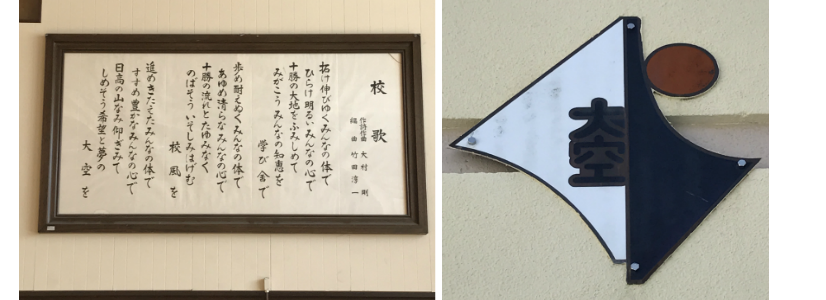 校歌
作詞作曲 大村剛
編曲 竹田淳一
拓け伸びゆくみんなの体で
ひらけ明るいみんなの心で
十勝の大地をふみしめて
みがこうみんなの知恵を
学び舎で
歩め耐えぬくみんなの体で
あゆめ清らなみんなの心で
十勝の流れとたゆみなく
のばそういそしみはげむ
校風を
進めきたえたみんなの体で
すすめ豊かなみんなの心で
日高の山なみ仰ぎみて
しめそう希望と夢の
大空を
大空